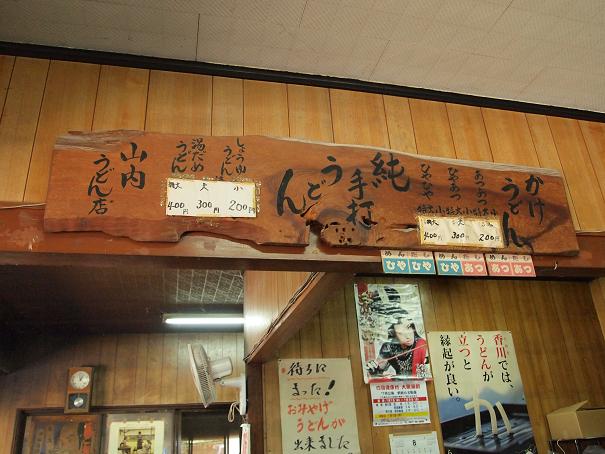 かけ
うどん
あつあつ
ひやあつ
ひやひや
特大 大 小
400円 300円 200円
純
手打
うどん
しょうゆ
うどん
湯だめ
うどん
特大 大 小
400円 300円 200円
山内
うどん店
めん だし
ひや ひや
めん だし
ひや あつ
めん だし
あつ あつ
待ちに
まった!
おみやげ
うどんが
出来ました
香川では、
うどんが
立つと
縁起が良い。
か
8